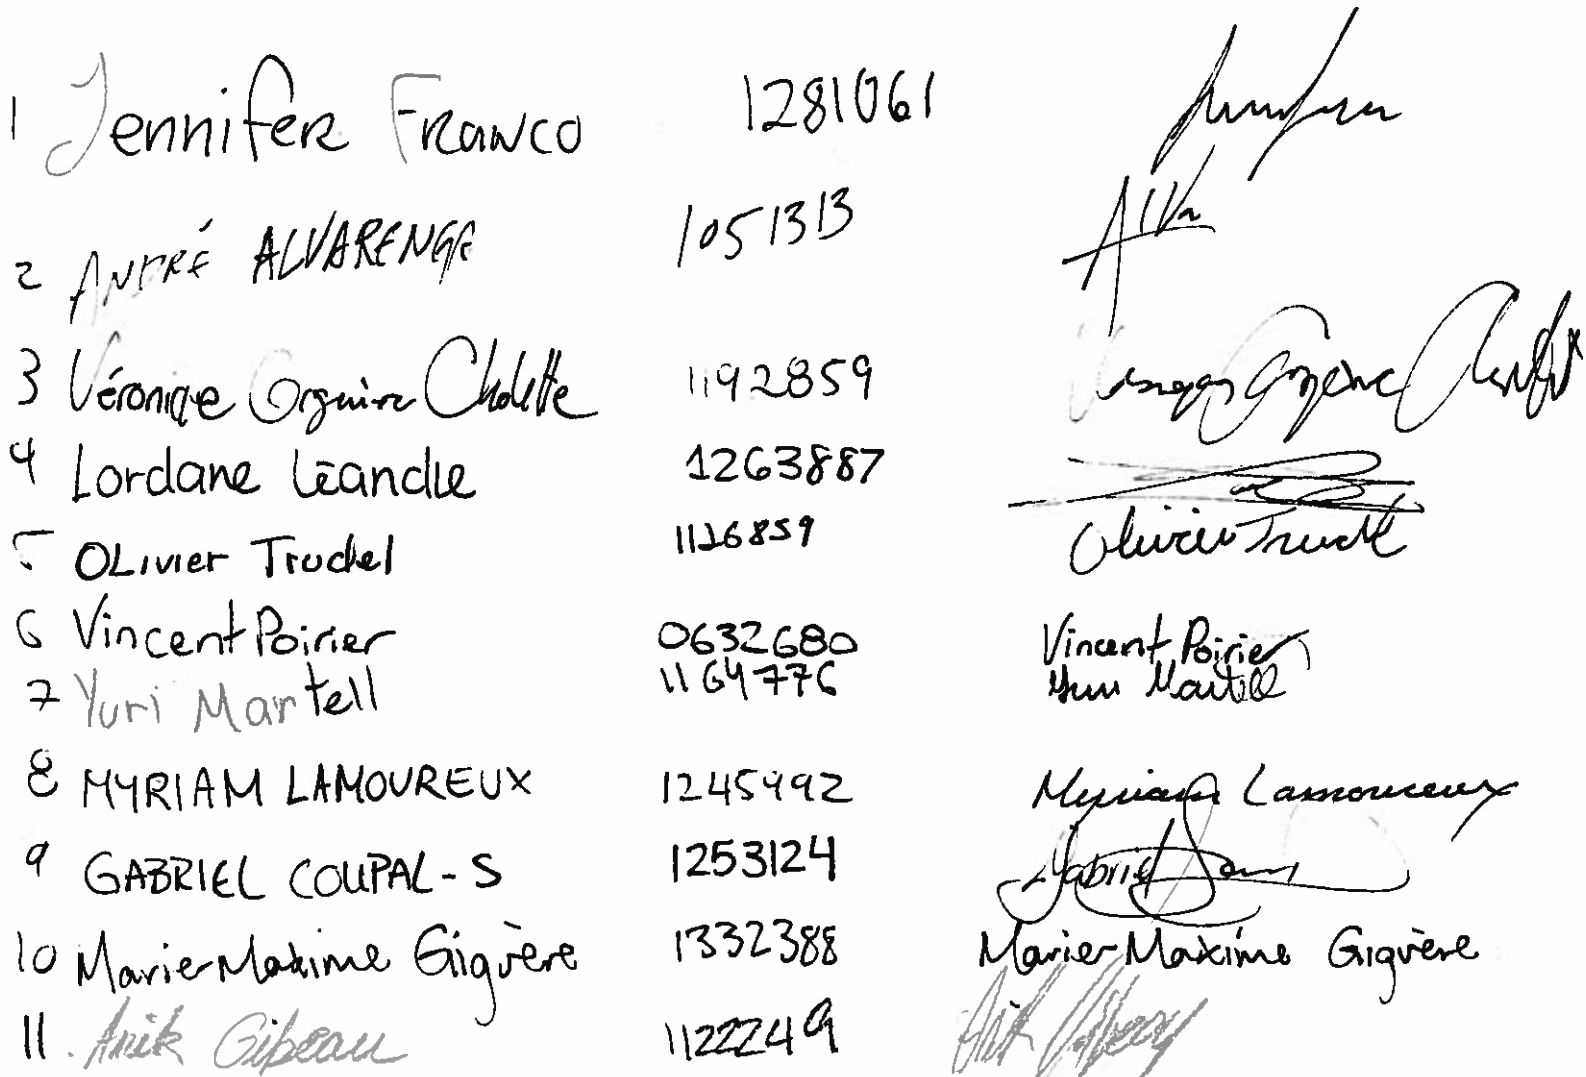 1 Jennifer Franco 1281061
2 ANDRÉ ALVARENGA 1051313 Alva
3 Véronique Cholette 1192859
4 Lordane Léandre 1263887
5 OLIVIER Trudel 1126859 Olivier Trudel
6 Vincent Poirier 0632680 Vincent Poirier
7 Yuri Martell 1164776 Yuri Martell
8 MYRIAM LAMOUREUX 1245992 Myriam Lamoureux
9 GABRIEL COUPAL-S 1253124 Gabriel
10 Marier Maxime Giguère 1332388 Marier Maxime Giguère
11. Anik Gibeau 1122249 Anik